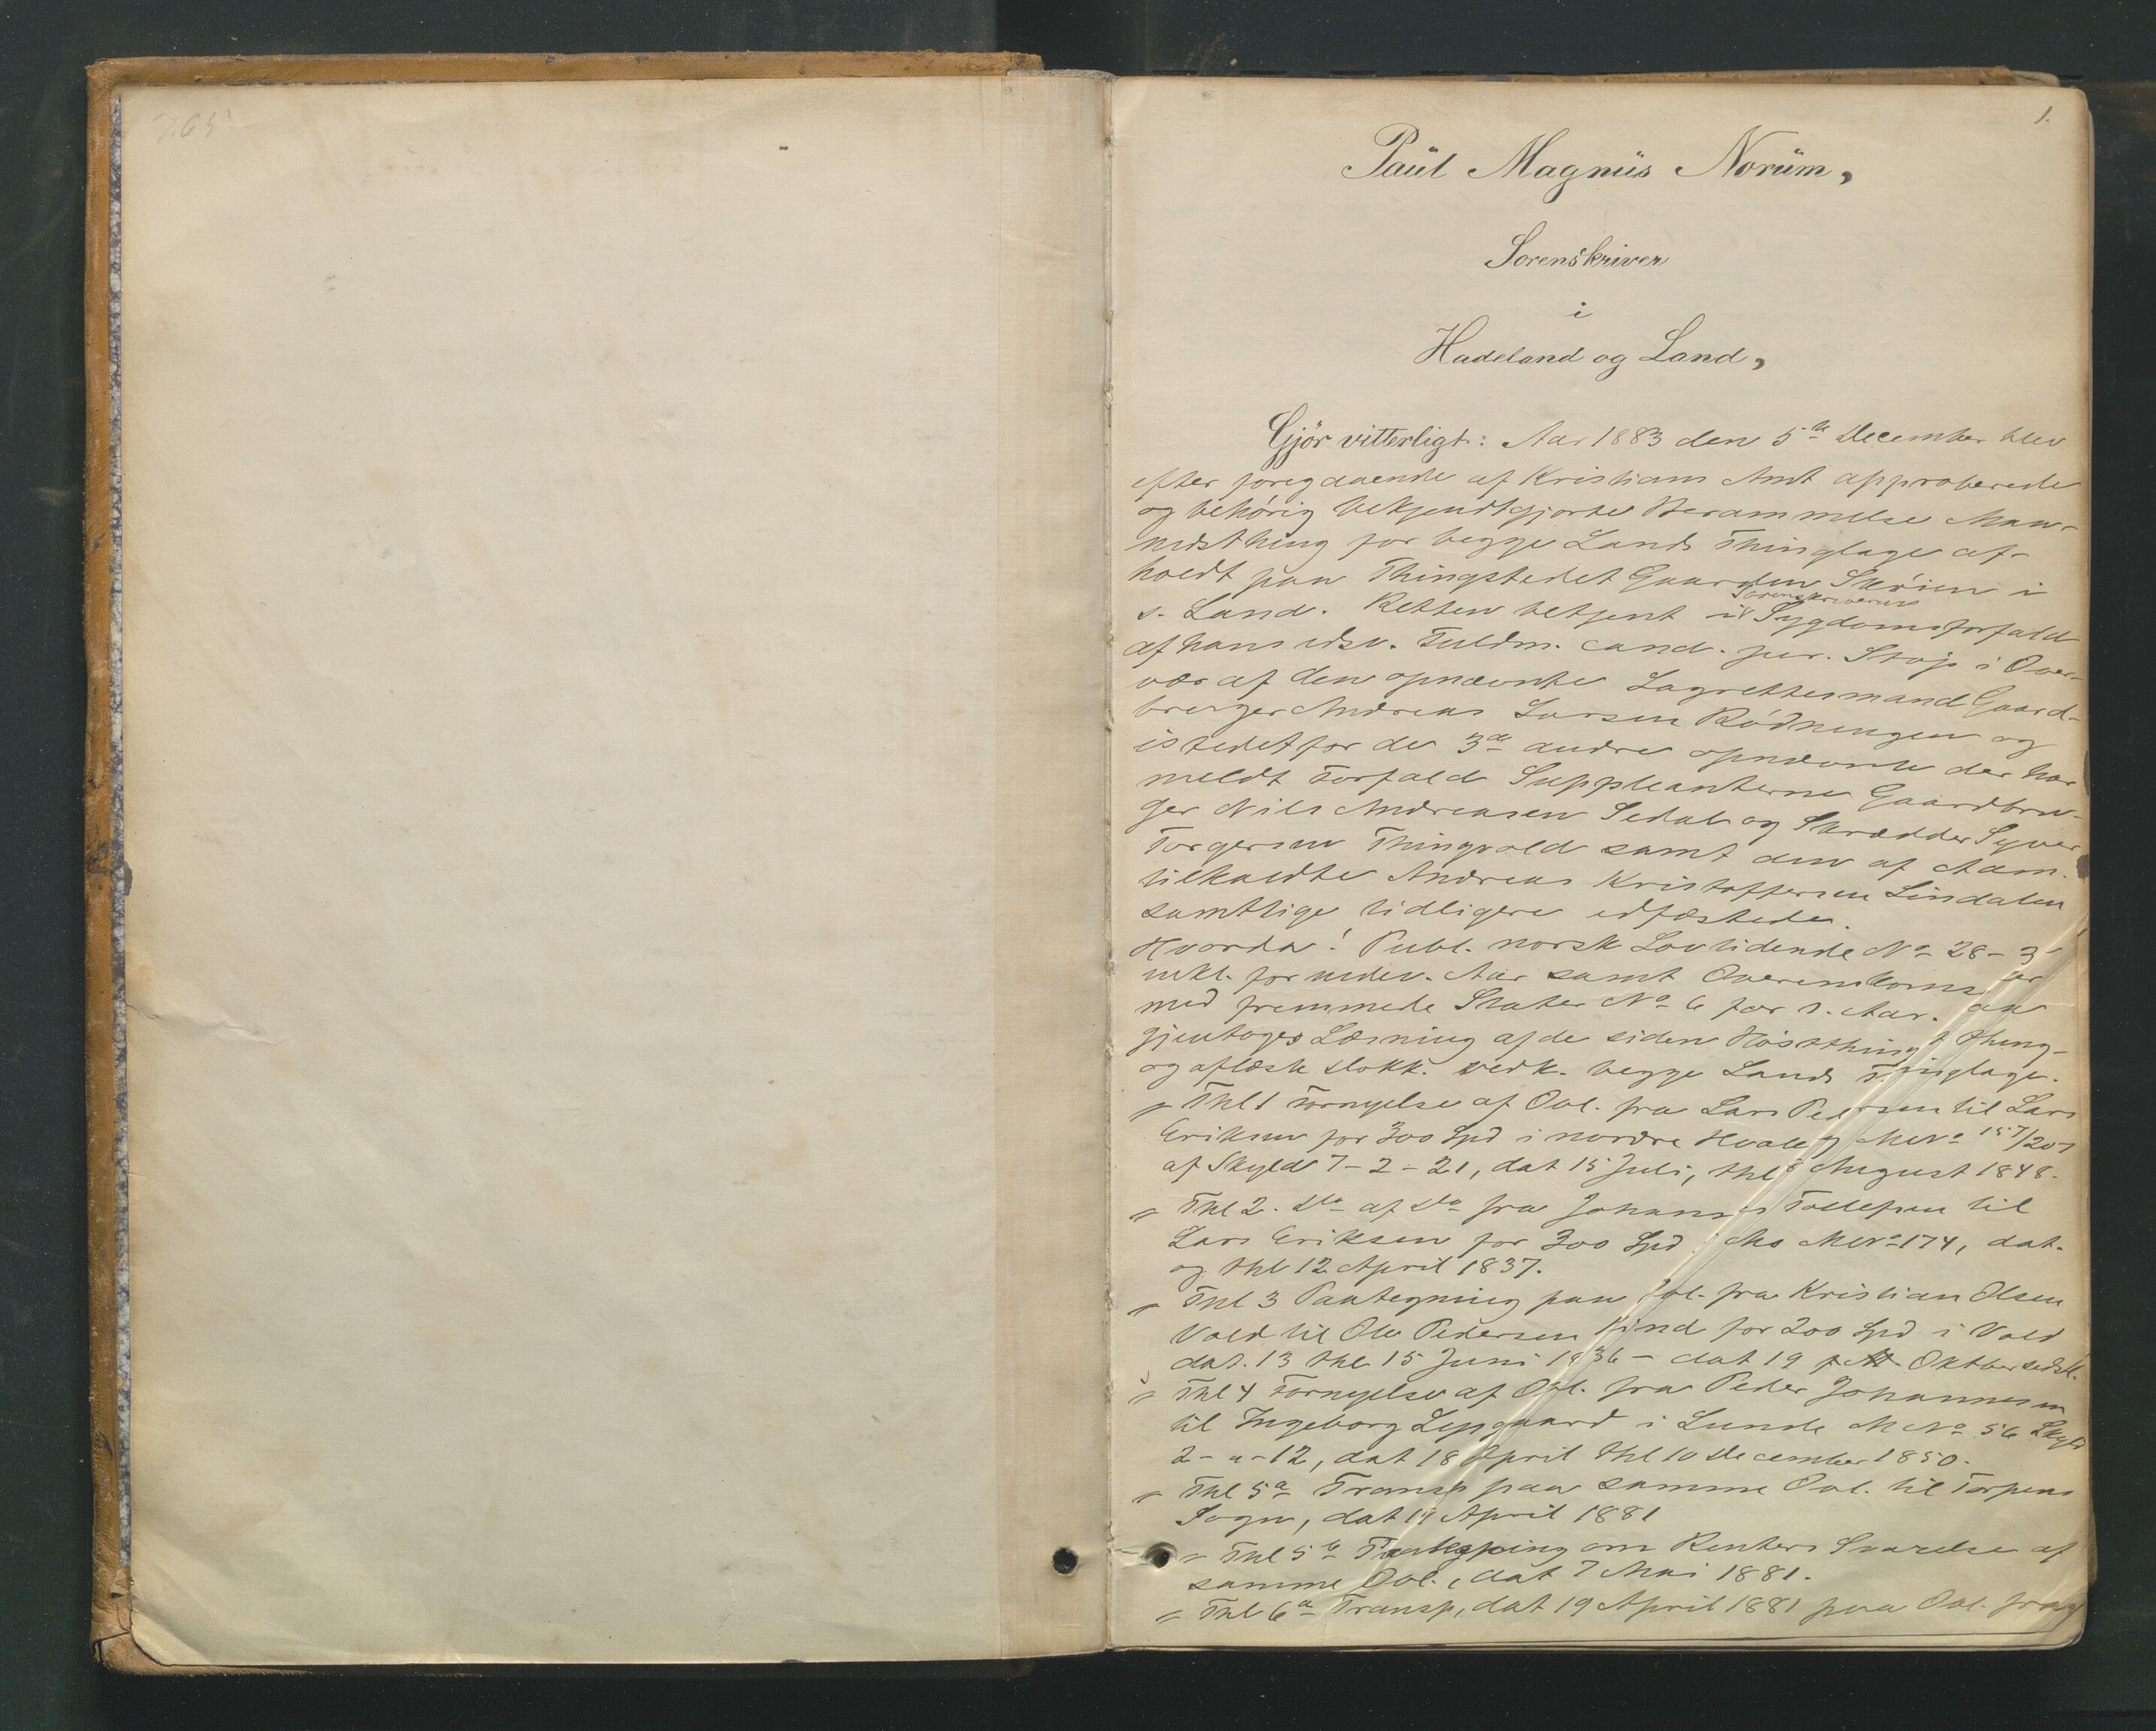 765
1.
Paul Magnus Norum,
Sorenskriver
i
Hadeland og Land,
Gjör vitterligt: Aar 1883 den 5te December blev
efter foregaaende af Kristians Amt approberede
og behörig bekjendtgjorte Berammelse Maa-
nedsthing for begge Lands Thinglage af-
holdt paa Thingstedet Gaarden Sköien i
s. Land. Retten betjent i Sorenskriverens Sygdomsforfald
af hans edsv. Fuldm. cand. jur. Stoje i Over-
vær af den opnævnte Lagrettesmand Gaard-
bruger Andreas Larsen Rödningen og
istedetfor de 3de andre opnævnte der har
meldt Forfald Suppleanterne Gaardbru-
ger Nils Andreasen Sedal og Skrædder Syver
Torgersen Thingvold samt den af Adm.
tilkaldte Andreas Kristoffersen Lindalen
samtlige tidligere edfæstede.
Hvorda: Publ. norsk Lovtidende No 28-3
inkl. for indev. Aar samt Overenskomster
med fremmede Stater No 6 for s. Aar.
gjentoges Læsning af de siden Høstthinget thing-
og aflæste Dokk. vedk. begge Lands Thinglage.
" Thl 1 Fornyelse af Obl. fra Lars Pedersen til Lars
Eriksen for 300 Spd i nordre Hvaleby MNo 157/207
af Skyld 7-2-21, dat 15 Juli, thl August 1848.
" Thl 2. Do af Do fra Johannes Tollefsen til
Lars Eriksen for 300 Spd i Mo MNo 174, dat.
og thl 12 April 1837.
" Thl 3 Paategning paa Obl. fra Kristian Olsen
Vold til Ole Pedersen Lind for 200 Spd i Vold
dat. 13 thl 15 Juni 1836 - dat 19 Oktber sidstl.
" Thl 4 Fornyelse af Obl. fra Peder Johannesen
til Ingeborg Lepgaard i Lunde MNo 56 Skyld
2-"-12, dat 18 April thl 10 December 1850.
" Thl 5a Transp paa samme Obl. til Torpens
Sogn, dat 19 April 1881
" Thl 5b Paategning om Renters Svarelse af
samme Obl., dat 7 Mai 1881.
" Thl 6a Transp, dat 19 April 1881 paa Obl. fra